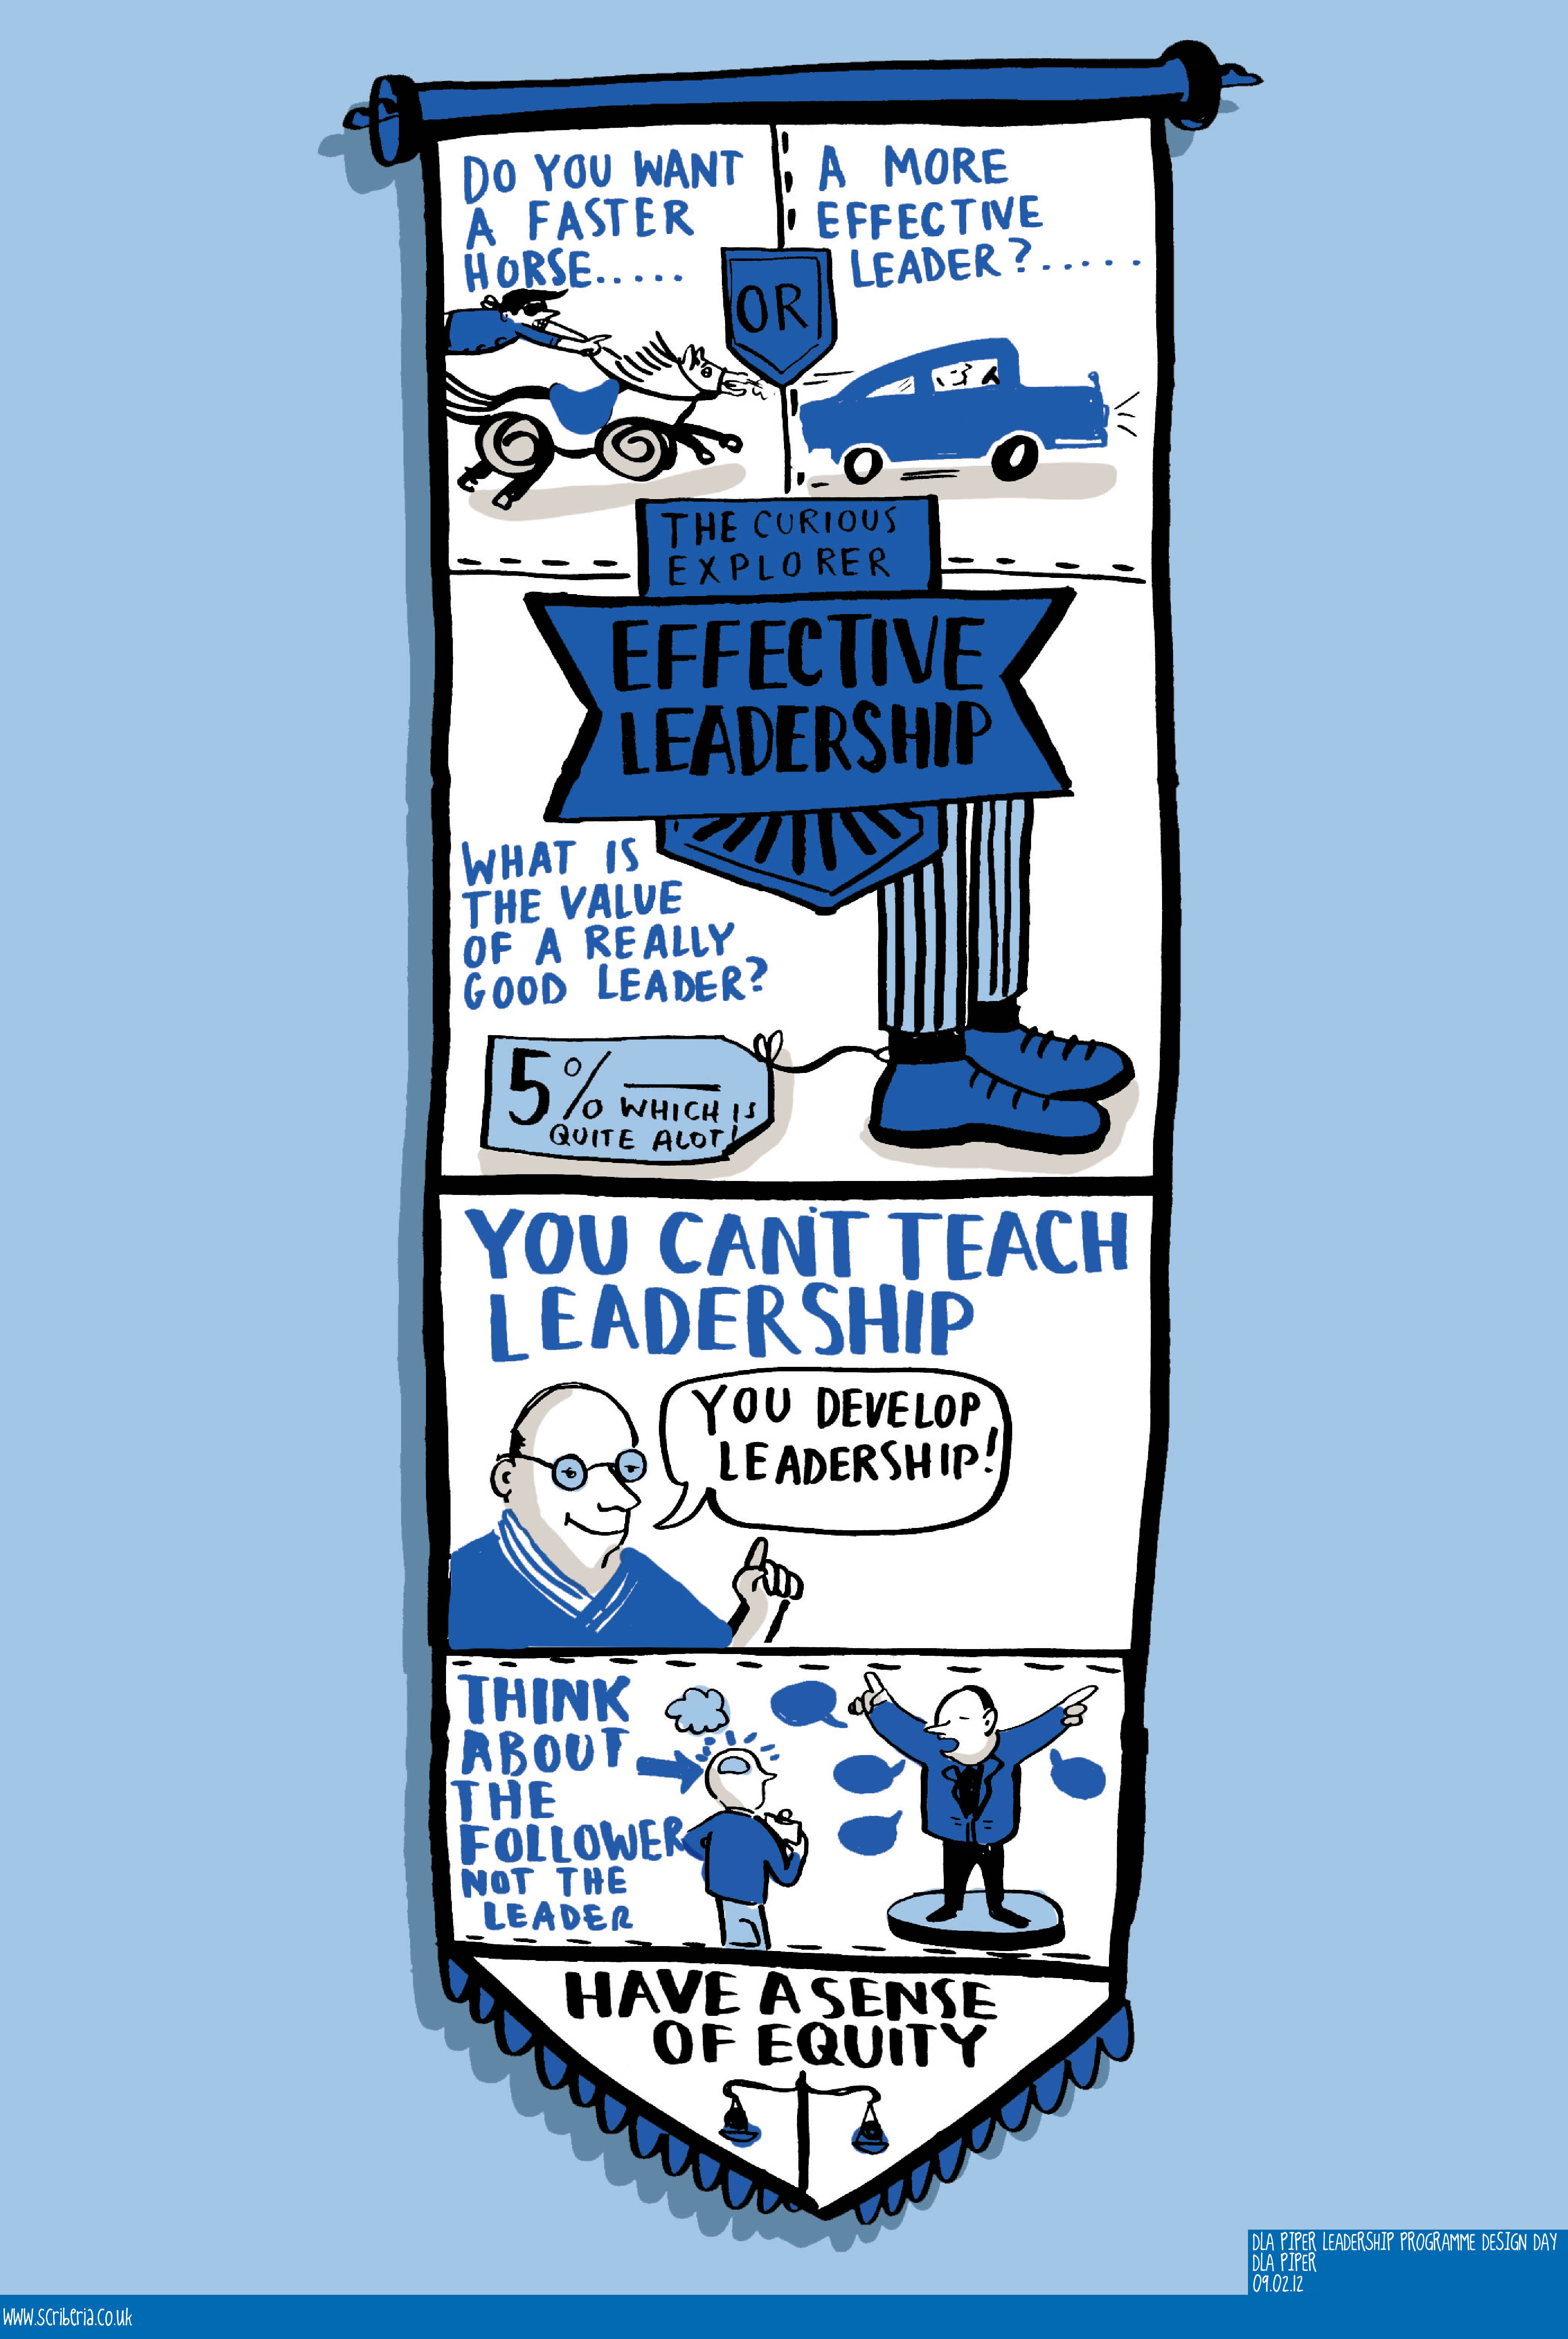 DO YOU WANT
A FASTER
HORSE.....
OR
A MORE
EFFECTIVE
LEADER?.....
THE CURIOUS
EXPLORER
EFFECTIVE
LEADERSHIP
WHAT IS
THE VALUE
OF A REALLY
GOOD LEADER?
5% — WHICH IS
QUITE ALOT!
YOU CAN'T TEACH
LEADERSHIP
YOU DEVELOP
LEADERSHIP!
THINK
ABOUT
THE
FOLLOWER
NOT THE
LEADER
HAVE A SENSE
OF EQUITY
DLA PIPER LEADERSHIP PROGRAMME DESIGN DAY
DLA PIPER
09.02.12
www.scriberia.co.uk